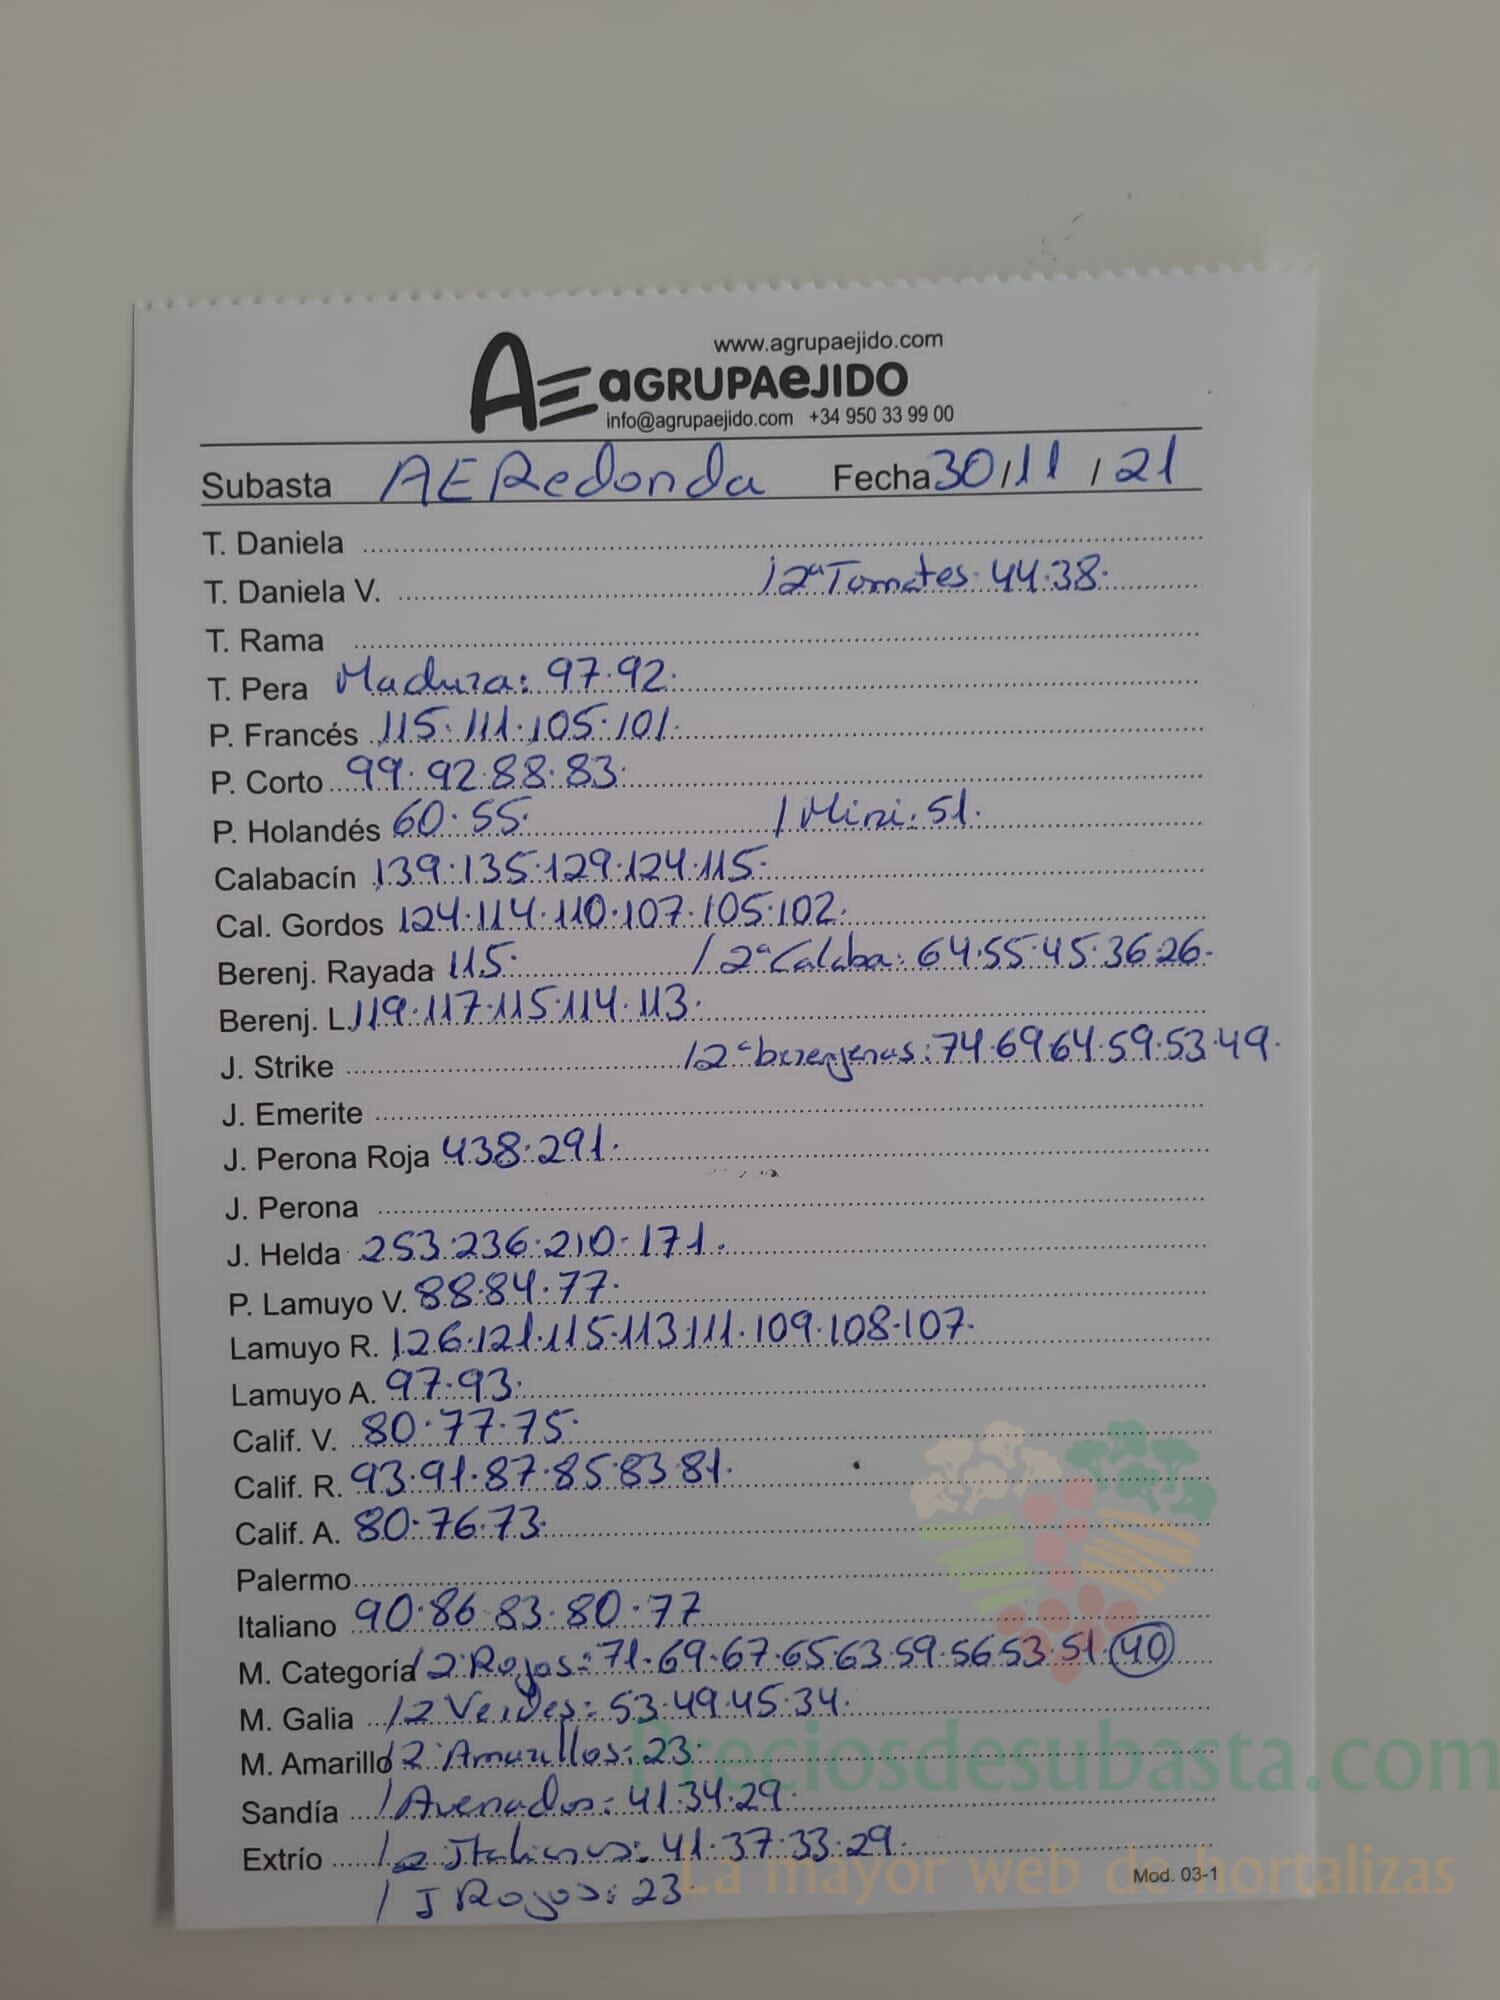 www.agrupaejido.com
AE aGRUPAeJIDO
info@agrupaejido.com +34 950 33 99 00
Subasta AE Redonda Fecha 30/11/21
T. Daniela
T. Daniela V. /2ª Tomates: 44.38.
T. Rama
T. Pera Madura: 97.92.
P. Francés 115.111.105.101.
P. Corto 99.92.88.83.
P. Holandés 60.55. /Mini: 51.
Calabacín 139.135.129.124.115.
Cal. Gordos 124.114.110.107.105.102.
Berenj. Rayada 115. /2ª Calaba: 64.55.45.36.26.
Berenj. L. 119.117.115.114.113.
J. Strike /2ª berenjenas: 74.69.64.59.53.49.
J. Emerite
J. Perona Roja 438.291.
J. Perona
J. Helda 253.236.210.171.
P. Lamuyo V. 88.84.77.
Lamuyo R. 126.121.115.113.111.109.108.107.
Lamuyo A. 97.93.
Calif. V. 80.77.75.
Calif. R. 93.91.87.85.83.81.
Calif. A. 80.76.73.
Palermo
Italiano 90.86.83.80.77
M. Categoría /2 Rojos: 71.69.67.65.63.59.56.53.51.40
M. Galia /2 Verdes: 53.49.45.34.
M. Amarillo /2 Amarillos: 23
Preciosdesubasta.com
Sandía /Avenados: 41.34.29.
Extrío /2 Italianos: 41.37.33.29.
La mayor web de hortalizas
Mod. 03-1
/ I Rojos: 23